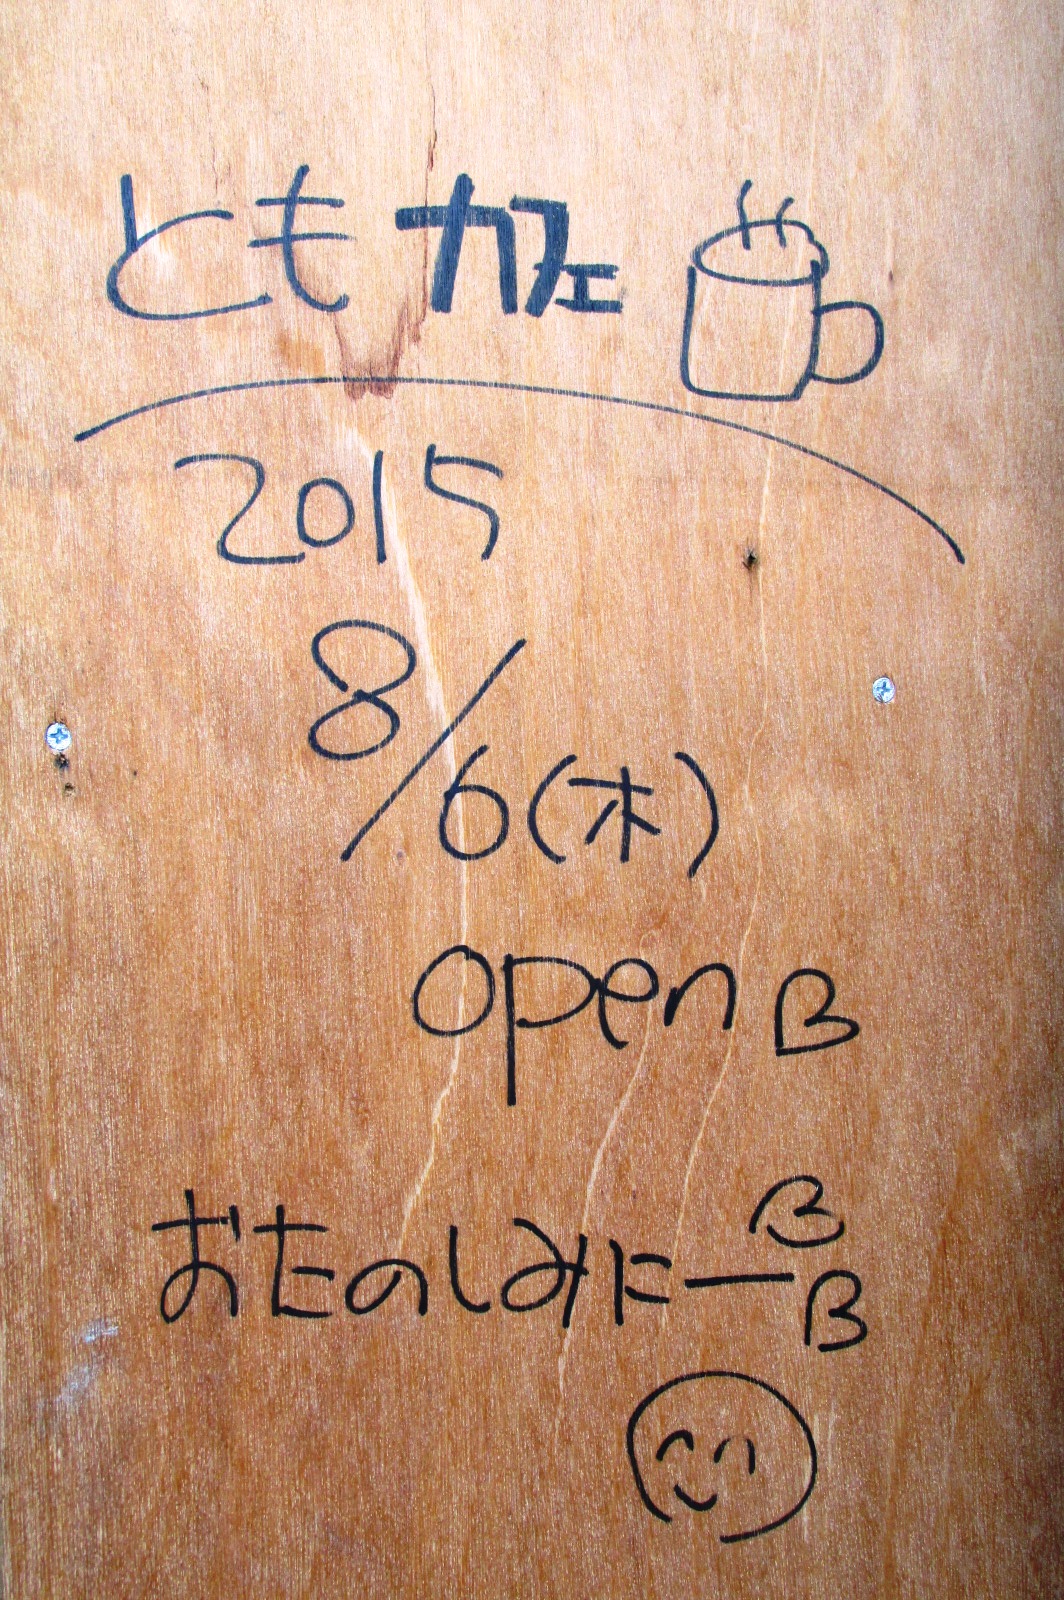 ともカフェ
2015
8/6(木)
open
おたのしみにー